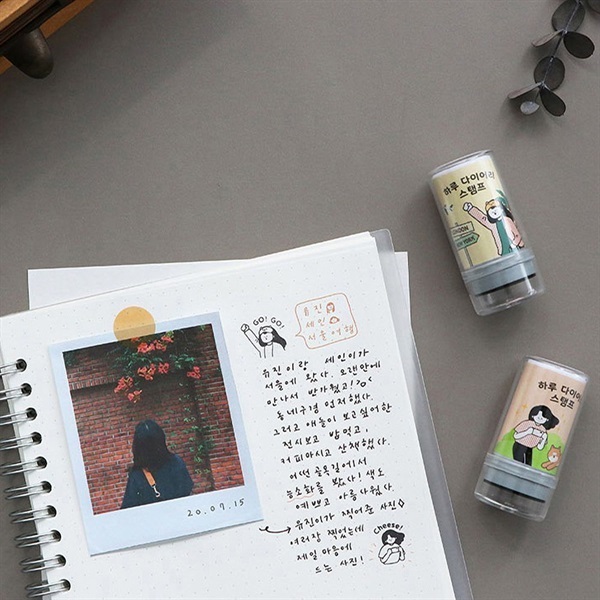 GO! GO!
유진
세인
서울여행
유진이랑 세인이가
서울에 왔다. 오랜만에
만나서 반가웠고!
동네구경 먼저했다.
그리고 애들이 보고싶어한
전시보고 밥먹고,
커피마시고 산책했다.
어떤 골목길에서
능소화를 봤다! 색도
예쁘고 아름다웠다.
유진이가 찍어준 사진
여러장 찍었는데
제일 마음에
드는 사진!
Cheese!
20.09.15
하루 다이어리
스탬프
LONDON
NEW YORK
하루 다이어리
스탬프